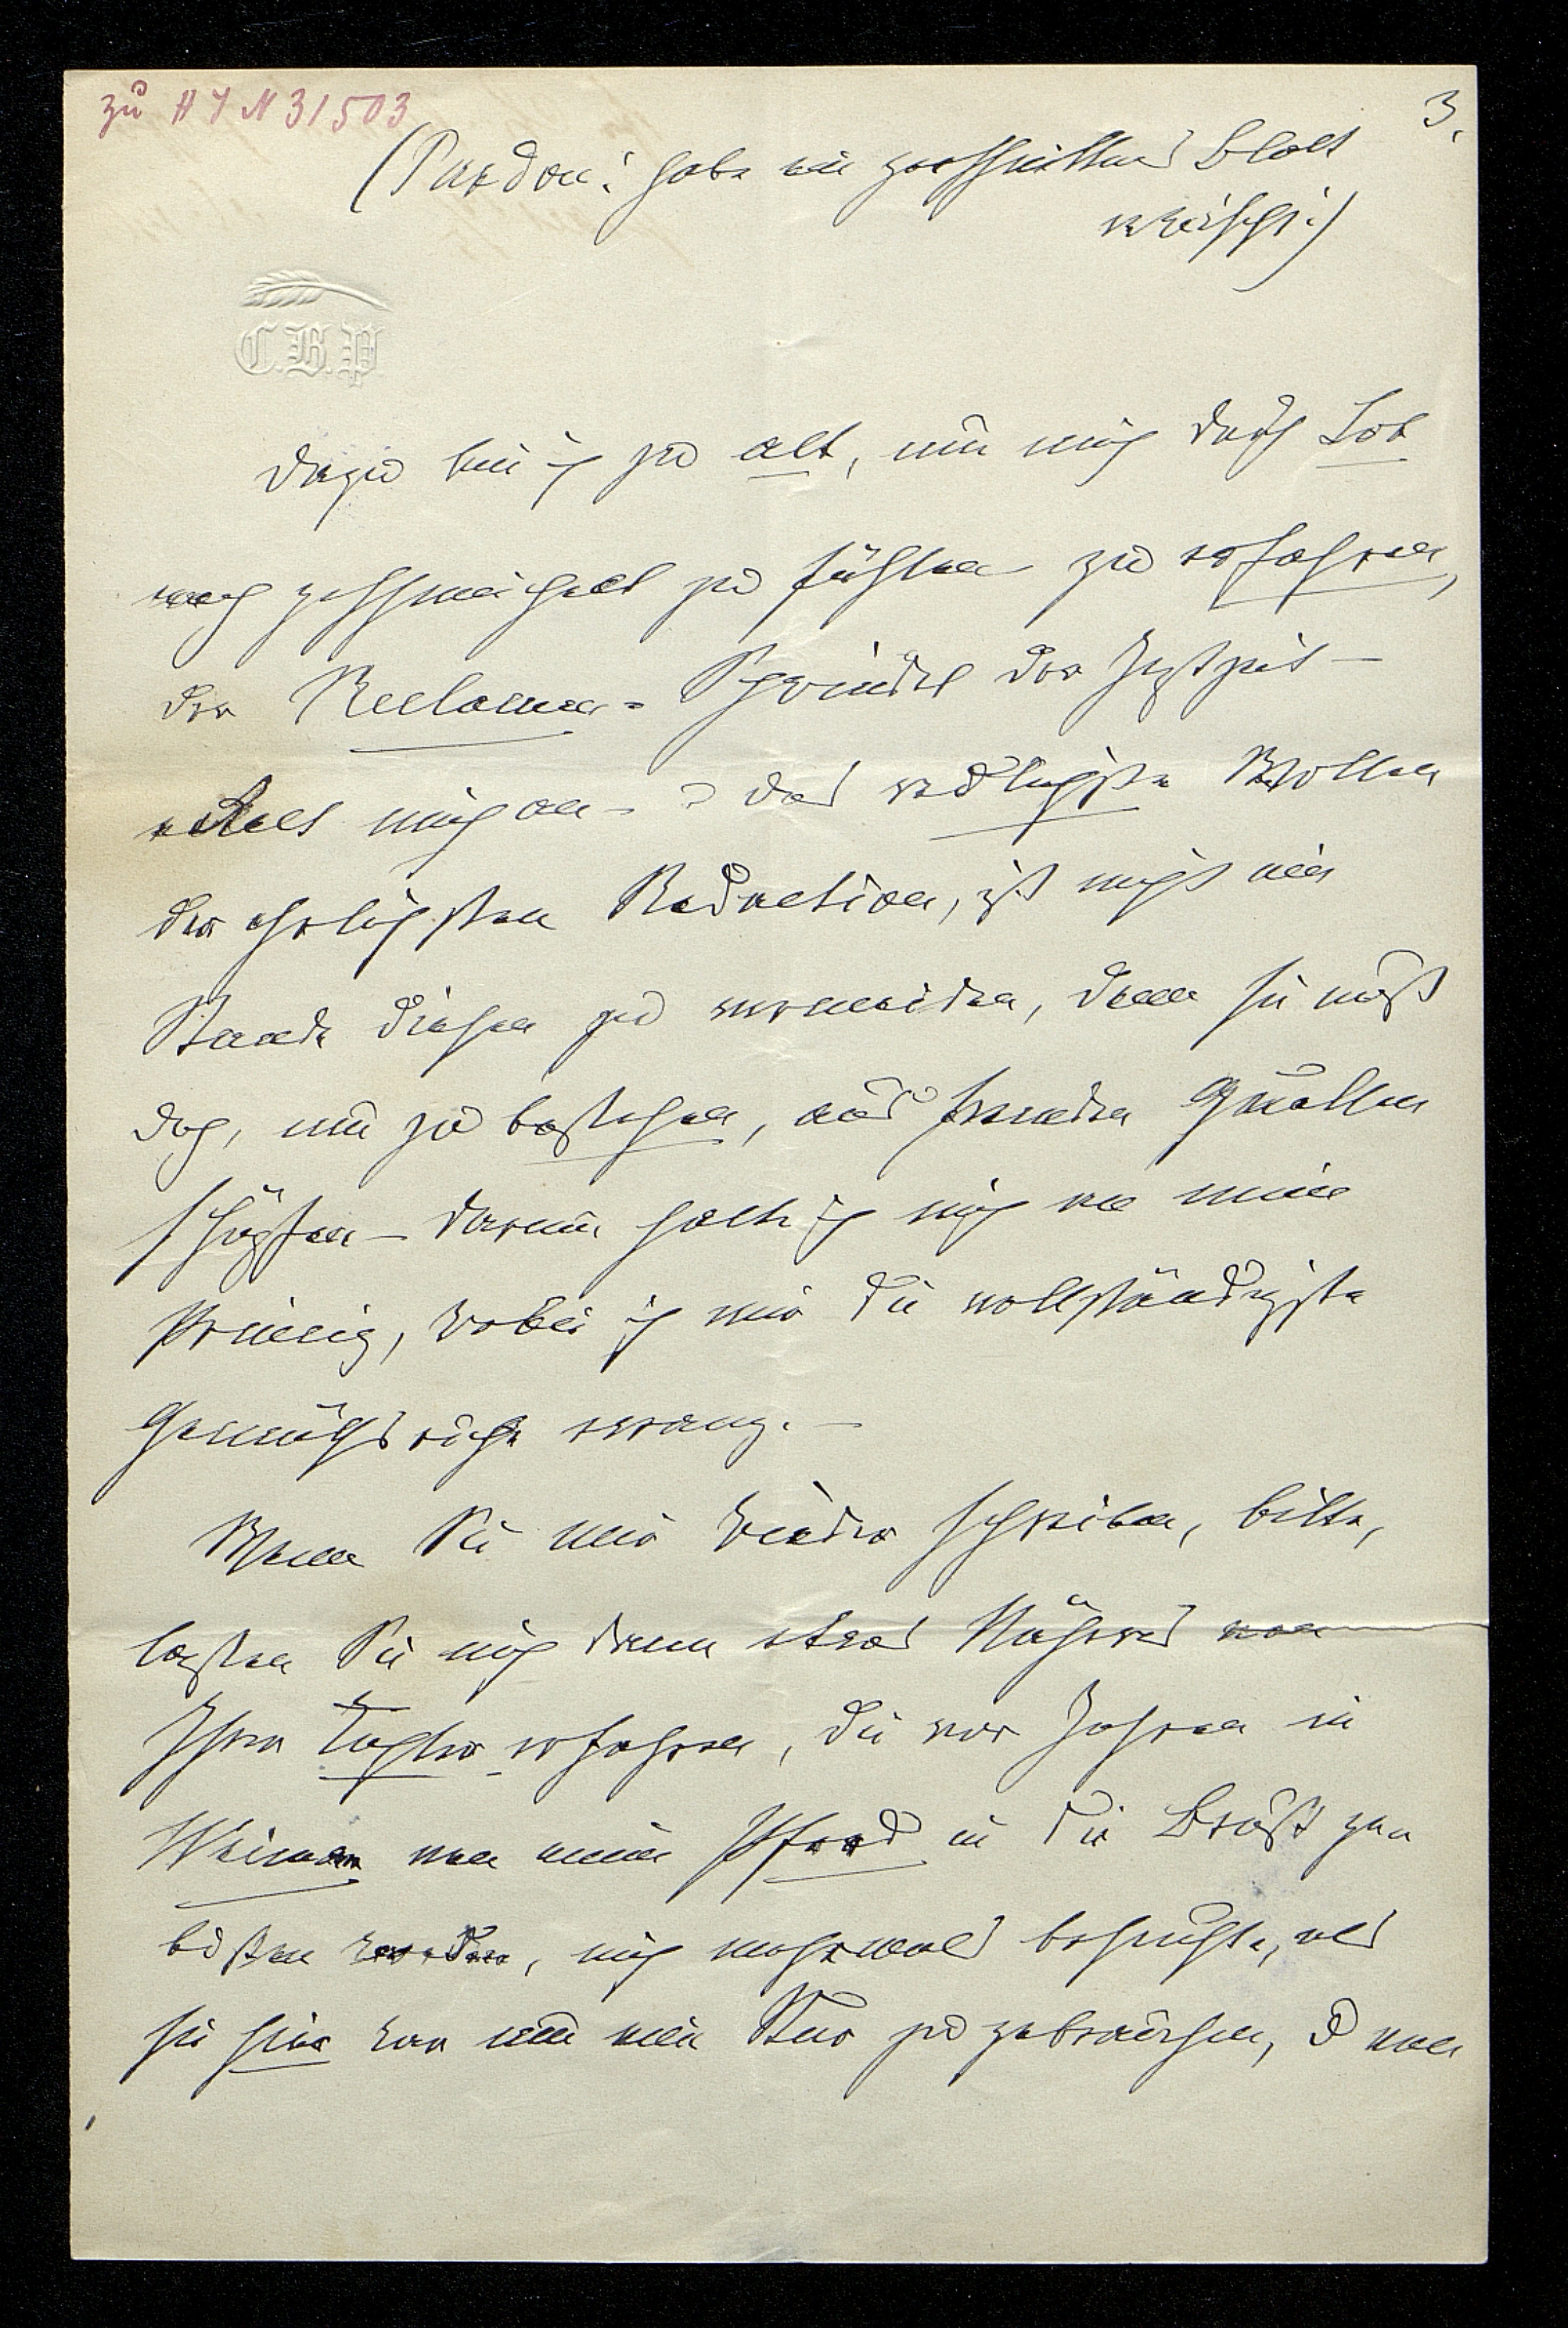 zu H I N 31503
3.
(Pardon! habe ein zerschnittenes Blatt
erwischt!)
C.B.P.
dazu bin ich zu alt, um mich durch Lob
noch geschmeichelt zu fühlen zu erfahren,
der Reclame-Schwindel der Jetztzeit –
ekelt mich an – u das redlichste Wollen
der ehrlichsten Redaction, ist nicht im
Stande diesen zu vermeiden, denn sie muß
doch, um zu bestehen, aus fremden Quellen
schöpfen – darum halte ich mich an mein
Prinzip, wobei ich mir die vollständigste
Gemüthsruhe errang. –
Wenn Sie mir wieder schreiben, bitte,
lassen Sie mich dann etwas Näheres von
Ihrer Tochter erfahren, die vor Jahren in
Weimar von einem Pferd in die Brust ge
bissen worden, mich mehrmals besuchte, als
sie hier war um eine Kur zu gebrauchen, u von